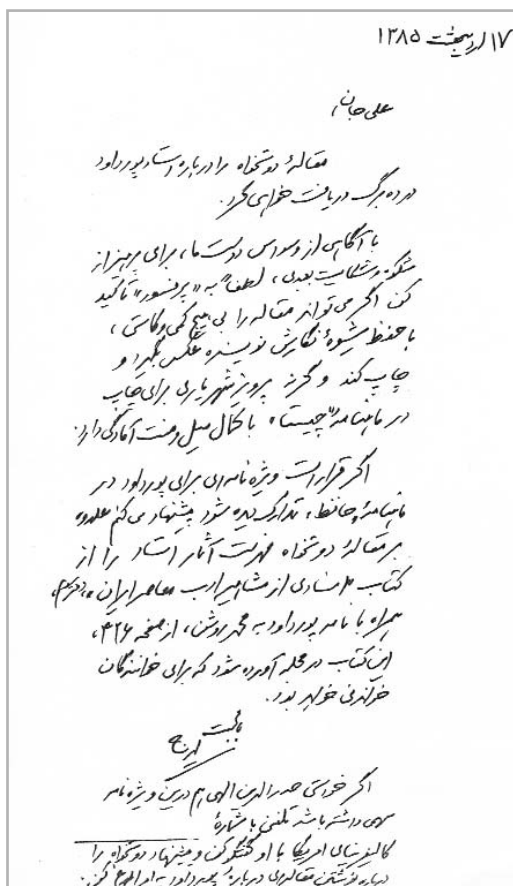 ۱۷ اردیبهشت ۱۳۸۵
علی جان،
مقالهٔ دوستخواه را درباره استاد پورداود
در ده برگ دریافت خواهی کرد.
با آگاهی از وسواس دوست ما، برای پرهیز از
شکوه و شکایت بعدی، لطفاً به «پرفسور» تأکید
کن اگر می‌تواند مقاله را بی هیچ کمی و کاستی،
با حفظ شیوهٔ نگارش نویسنده عکس بگیرد و
چاپ کند وگرنه پرویز شهریاری برای چاپ
در ماهنامهٔ «چیستا» با کمال میل و منت آمادگی دارد.
اگر قرار است ویژه نامه‌ای برای پورداود در
ماهنامهٔ حافظ، تدارک دیده شود پیشنهاد می‌کنم علاوه
بر مقالهٔ دوستخواه فهرست آثار استاد را از
کتاب «اسنادی از مشاهیر ادب معاصر ایران»،
همراه با نامه پورداود به محمد روشن، از صفحه ۴۲۶،
این کتاب در مجله آورده شود که برای خوانندگان
خواندنی خواهد بود.
با محبت
ایرج
اگر خواستی صدرالدین الهی هم در این ویژه نامه
سهمی داشته باشد تلفنی با شمارهٔ
کالیفرنیای امریکا با او گفتگو کن و پیشنهاد دوستخواه را
درباره نوشتن مقاله‌ای دربارهٔ پورداود به او ابلاغ کن.